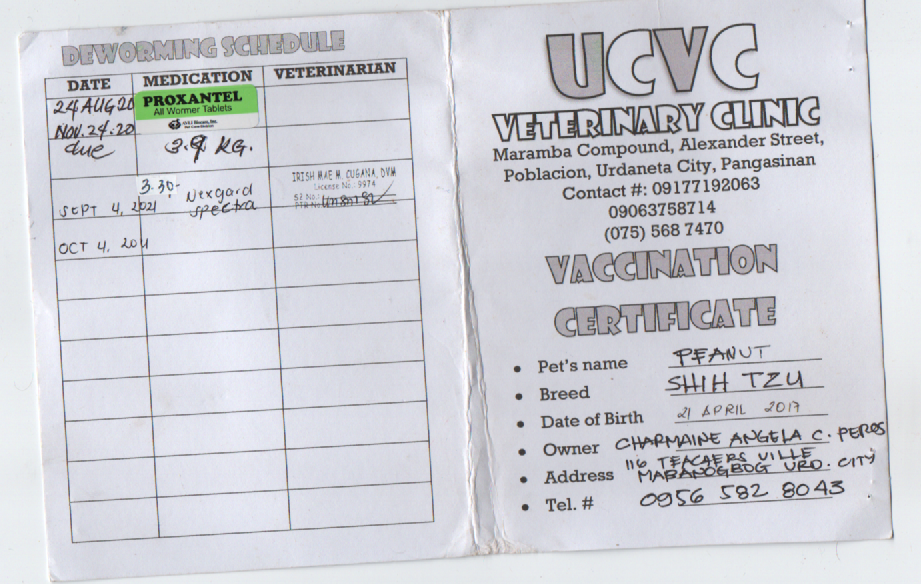 DEWORMING SCHEDULE
DATE MEDICATION VETERINARIAN
24 AUG 20 PROXANTEL
All Wormer Tablets
NOV. 24. 20
due 3.9 KG.
3.30-
SEPT 4, 2021 Nexgard
spectra
IRISH MAE M. CUGANA, DVM
License No. 9974
OCT 4, 2011
UCVC
VETERINARY CLINIC
Maramba Compound, Alexander Street,
Poblacion, Urdaneta City, Pangasinan
Contact #: 09177192063
09063758714
(075) 568 7470
VACCINATION
CERTIFICATE
• Pet's name PEANUT
• Breed SHIH TZU
• Date of Birth 21 APRIL 2017
• Owner CHARMAINE ANGELA C. PEROS
116 TEACHERS VILLE
• Address MABANOGBOG URD. CITY
• Tel. # 0956 582 8043